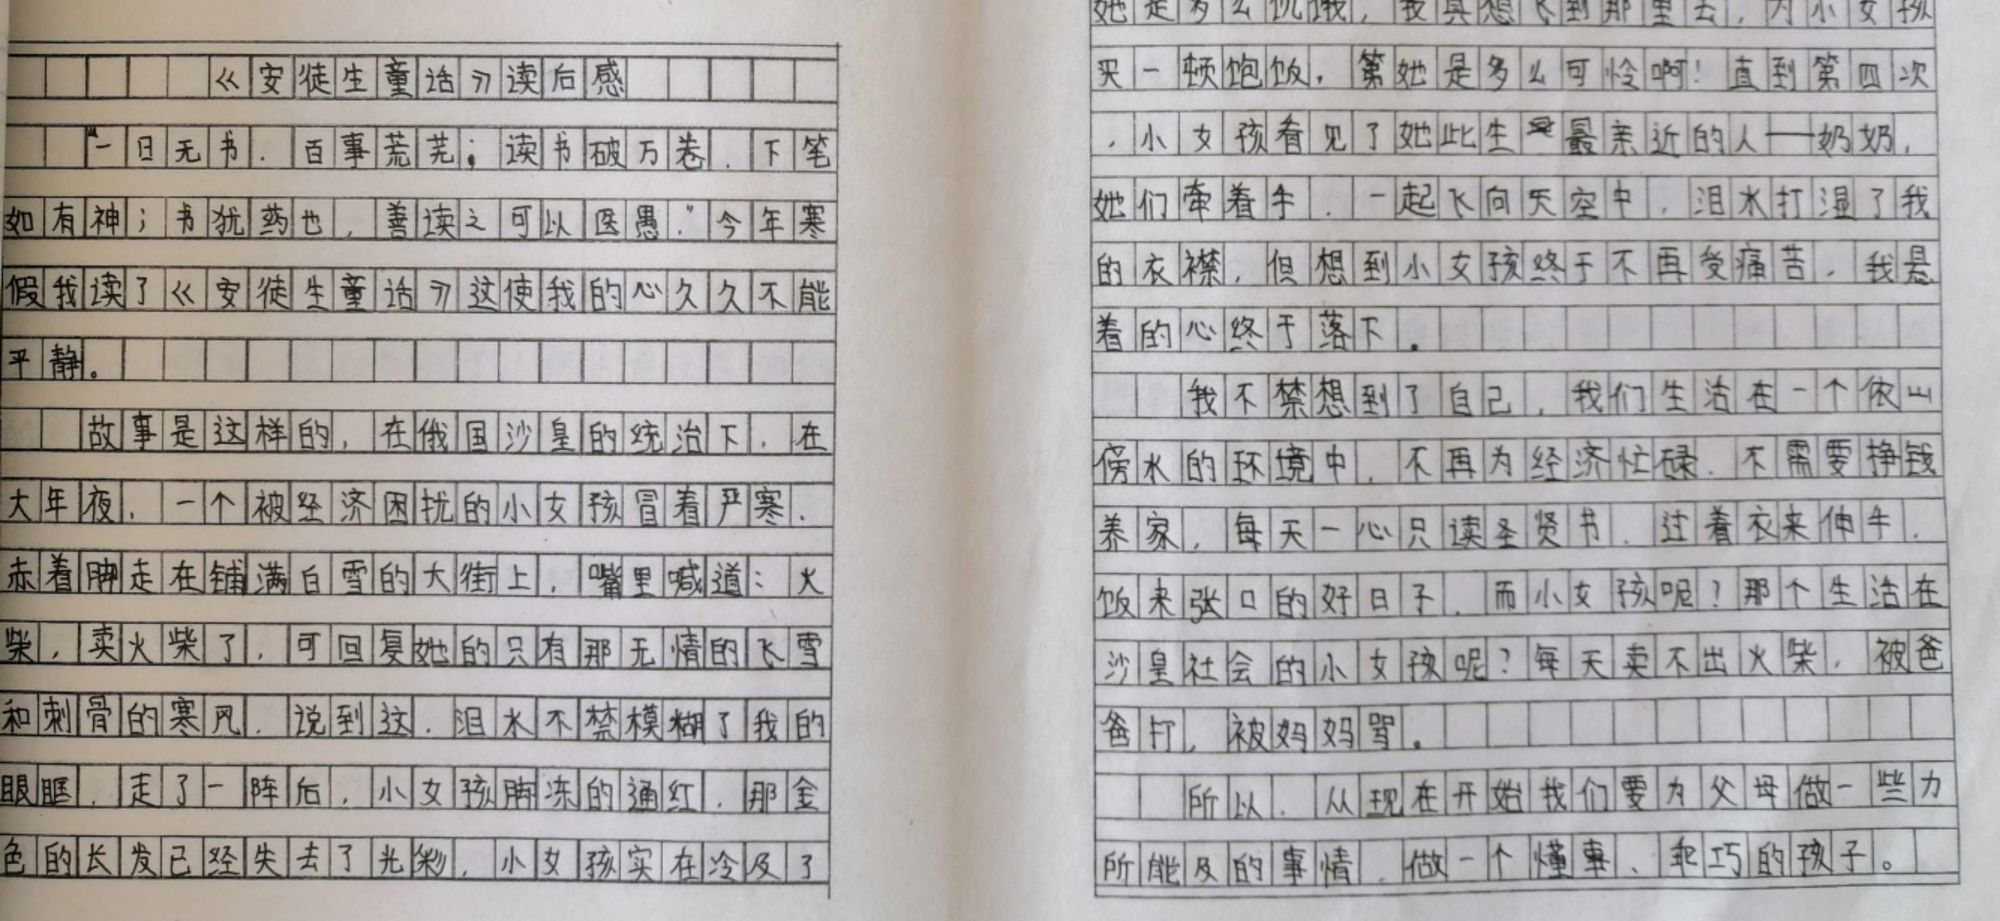 《安徒生童话》读后感
“一日无书，百事荒芜；读书破万卷，下笔
如有神；书犹药也，善读之可以医愚。”今年寒
假我读了《安徒生童话》这使我的心久久不能
平静。
故事是这样的，在俄国沙皇的统治下，在
大年夜，一个被经济困扰的小女孩冒着严寒，
赤着脚走在铺满白雪的大街上，嘴里喊道：火
柴，卖火柴了，可回复她的只有那无情的飞雪
和刺骨的寒风，说到这，泪水不禁模糊了我的
眼眶，走了一阵后，小女孩脚冻的通红，那金
色的长发已经失去了光彩，小女孩实在冷及了
她是多么饥饿，我真想飞到那里去，为小女孩
买一顿饱饭，第她是多么可怜啊！直到第四次
，小女孩看见了她此生最亲近的人——奶奶，
她们牵着手，一起飞向天空中，泪水打湿了我
的衣襟，但想到小女孩终于不再受痛苦，我悬
着的心终于落下。
我不禁想到了自己，我们生活在一个依山
傍水的环境中，不再为经济忙碌，不需要挣钱
养家，每天一心只读圣贤书，过着衣来伸手，
饭来张口的好日子，而小女孩呢？那个生活在
沙皇社会的小女孩呢？每天卖不出火柴，被爸
爸打，被妈妈骂。
所以，从现在开始我们要为父母做一些力
所能及的事情，做一个懂事、乖巧的孩子。